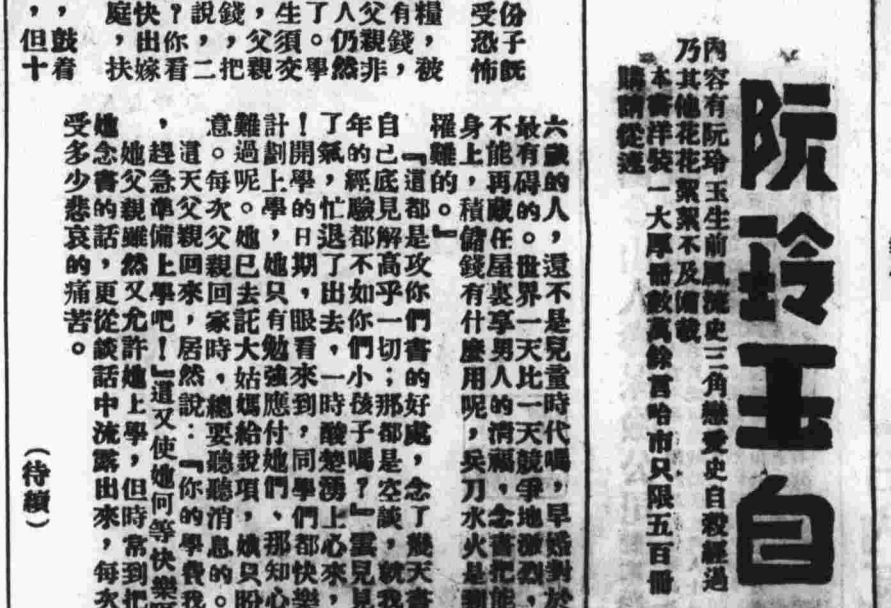 阮玲玉自
內容有阮玲玉生前風流史三角戀愛史自殺經過
乃其他花花絮絮不及備載
本書洋裝一大厚冊數萬餘言哈市只限五百冊
購請從速
份子既
受恐怖
糧，被
有錢，
父親非
人仍然
了。學
生須交
，父親
錢，把
說，二
？你看
快出嫁
庭，扶
，鼓着
，但十
六歲的人，還不是兒童時代嗎，早婚對於
最有碍的。世界一天比一天競爭地激烈，
不能再藏在屋裏享男人的清福，念書把能
身上，積儲錢有什麼用呢，兵刀水火是到
羅難的。』
『這都是攻你們書的好處，念了幾天書
自己底見解高乎一切；那都是空談，就我
年的經驗都不如你們小孩子嗎？』雲兒見
了氣，忙退了出去，一時酸楚湧上心來，
！開學的日期，眼看來到，同學們都快樂
計劃上學，她只有勉強應付她們、那知心
難過呢。她已去託大姑媽給說項，娥只盼
意。每次父親回家時，總要聽聽消息的。
這天父親回來，居然說：『你的學費我
，趕急準備上學吧！』這又使她何等快樂
她父親雖然又允許她上學，但時常到把
她念書的話，更從談話中流露出來，每次
受多少悲哀的痛苦。
（待續）